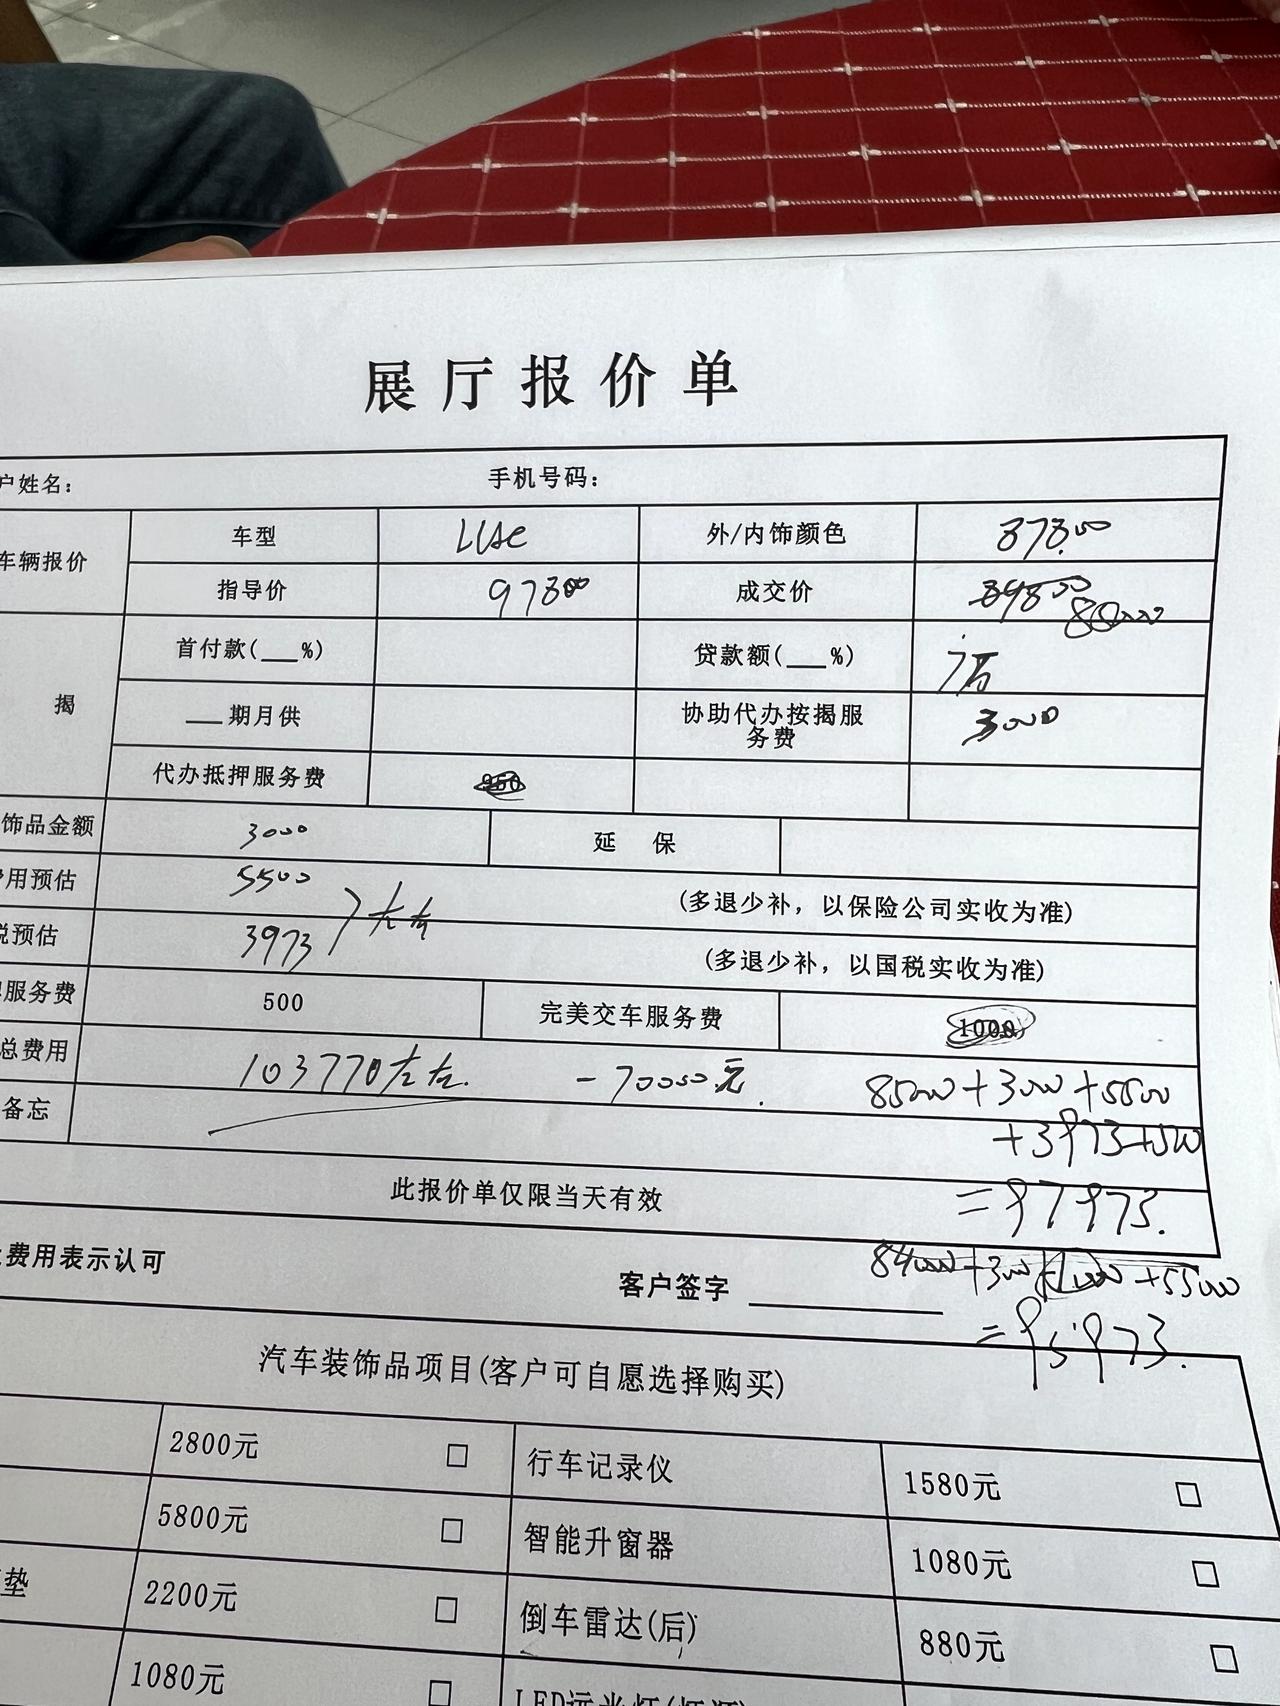 展厅报价单
户姓名： 手机号码：
车辆报价 车型 外/内饰颜色 87800
指导价 97800 成交价 89800 88000
揭 首付款(__%) 贷款额(__%) 7万
__期月供 协助代办按揭服务费 3000
代办抵押服务费
饰品金额 3000 延 保
用预估 5500 (多退少补，以保险公司实收为准)
税预估 3973 左右 (多退少补，以国税实收为准)
服务费 500 完美交车服务费 1000
总费用 103770左右. -70000元. 85000+3000+5500
备忘 +3973+500
此报价单仅限当天有效 =97973.
费用表示认可 84000+3000 +5500
客户签字 =95973.
汽车装饰品项目(客户可自愿选择购买)
2800元 □ 行车记录仪 1580元 □
5800元 □ 智能升窗器 1080元 □
垫 2200元 □ 倒车雷达(后) 880元 □
1080元 □